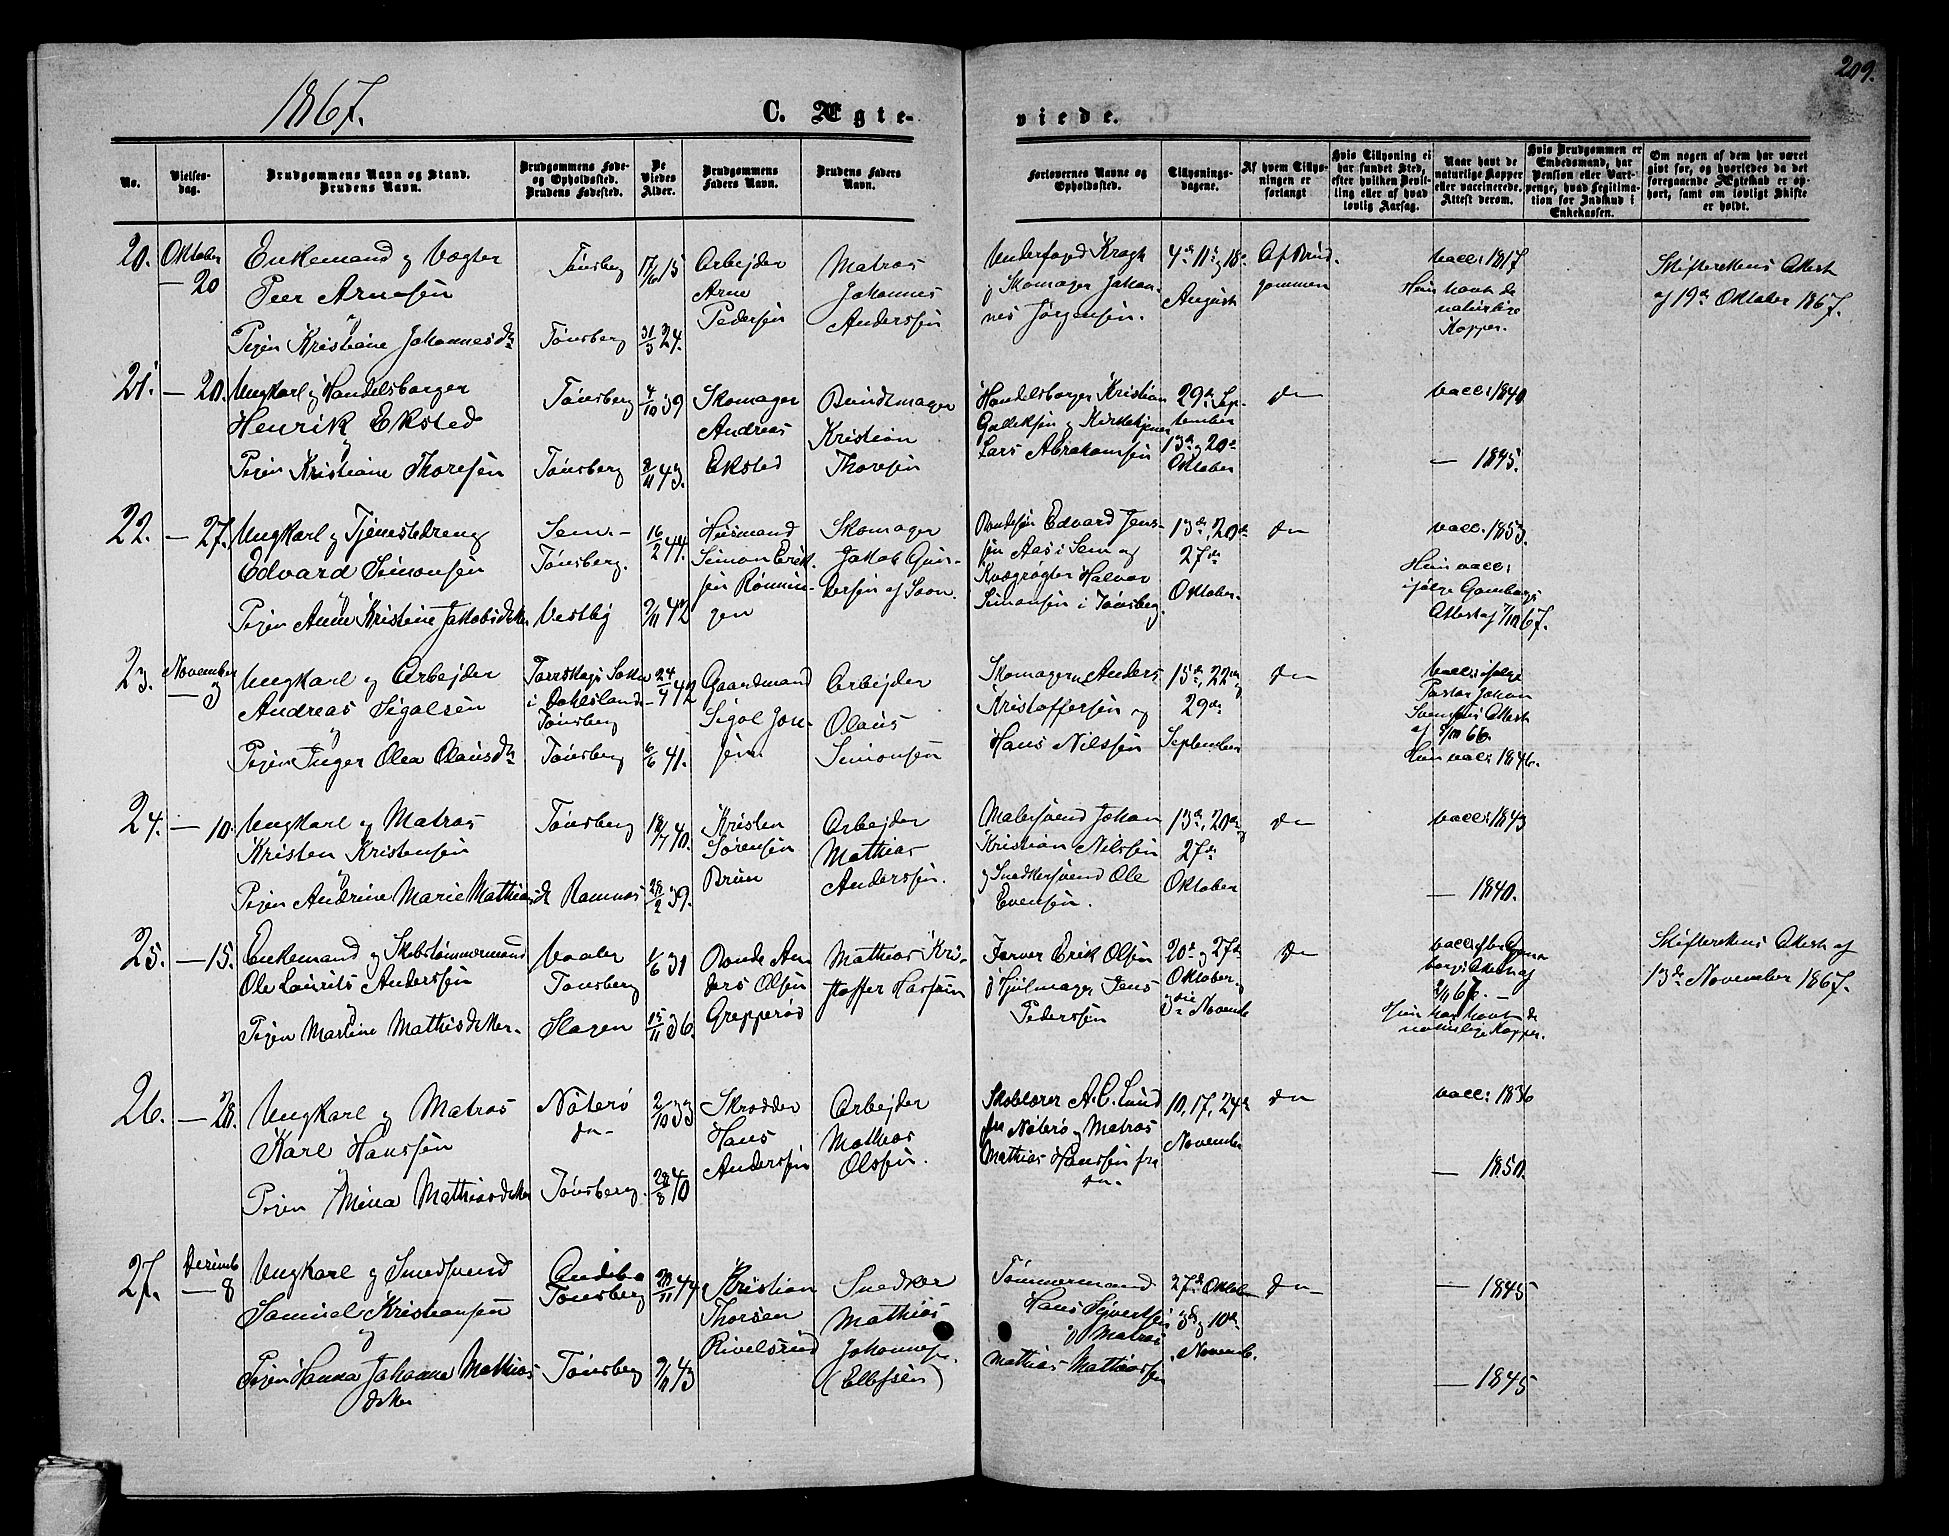 1867.
C. Ægte-
viede.
209.
No.
Vielses-
dag.
Brudgommens Navn og Stand.
Brudens Navn.
Brudgommens Føde-
og Opholdssted.
Brudens Fødested.
De
Viedes
Alder.
Brudgommens
Faders Navn.
Brudens Faders
Navn.
Forlovernes Navne og
Opholdssted.
Tillysnings-
dagene.
Af hvem Tillys-
ningen er
forlangt
Hvis Tillysning ei
har fundet Sted,
efter hvilken Bevil-
ling eller af hvad
lovlig Aarsag.
Naar havt de
naturlige Kopper
eller vaccinerede.
Attest derom.
Hvis Brudgommen er
Embedsmand, har
Pension eller Vart-
penge, hvad Legitima-
tion for Indskud i
Enkekassen.
Om nogen af dem har været
givt før, og hvorledes da det
foregaaende Ægteskab er op-
hørt, samt om lovligt Skifte
er holdt.
20.
Oktober
— 20
Enkemand og Vægter
Peer Arnesen
og
Pigen Kristiane Johannesdr
Tønsberg
Tønsberg
17/6 15
31/3 24.
Arbejder
Arne
Pedersen
Matros
Johannes
Anderssen
Underfoged Kragh
og Skomager Johan-
nes Jørgensen.
4de 11te og 18de
August
Af Brud-
gommen
vacc: 1817
Hun havt de
naturlige
Kopper.
Skifterettens Attest
af 19de Oktober 1867.
21.
— 20.
Ungkarl og Handelsborger
Henrik Eksted
og
Pigen Kristiane Thoresen
Tønsberg
Tønsberg
4/10 39
8/11 43.
Skomager
Andreas
Eksted
Bundtmager
Kristian
Thoresen
Handelsborger Kristian
Gulleksen og Kirketjener
Lars Abrahamsen
29de Sep-
tember
13de og 20de
Oktober
do
vacc: 1840
— 1845.
22.
— 27.
Ungkarl og Tjenestedreng
Edvard Simonsen
og
Pigen Anne Kristine Jakobsdatter
Sem —
Tønsberg.
Vestby
16/2 44.
2/11 42
Husmand
Simon Erik-
sen Rønnin-
gen
Skomager
Jakob Gun-
dersen af Soon.
Bondesøn Edvard Jens-
sen Aas i Sem og
Kvægrøgter Halvor
Simonsen i Tønsberg.
13de, 20de
27de
Oktober.
do
vacc: 1853.
Hun vacc:
ifølge Gamborgs
Attest af 7/10 67.
23.
November
— 3
Ungkarl og Arbejder
Andreas Sigolsen
og
Pigen Inger Olea Olausdr
i Dahlsland —
Tønsberg
Tønsberg
24/4 42
6/6 41.
Gaardmand
Sigol Jon-
sen.
Arbejder
Olaus
Simonsen
Skomagerne Anders
Kristoffersen og
Hans Nilssen
15de, 22de og
29de
September
do
vacc: ifølge
Pastor Johan
Svensens Attest
af 8/10 66.
Hun vacc: 1846.
24.
— 10.
Ungkarl og Matros
Kristen Kristensen
og
Pigen Andrine Marie Mathiasd
Tønsberg
Ramnæs
18/7 40.
28/2 39.
Kristen
Sørensen
Bruun
Arbejder
Mathias
Anderssen.
Malersvend Johan
Kristian Nilssen
og Snedkersvend Ole
Evensen.
13de, 20de og
27de
Oktober
do
vacc: 1843
— 1840.
25.
— 15.
Enkemand og Skibstømmermand
Ole Lauritz Anderssen
og
Pigen Martine Mathisdatter —
Vaaler
Tønsberg
Slagen
1/6 31
15/11 36.
Bonde An-
ders Olsen
Grepperød
Mathias Kri-
stoffer Hassum
Farver Erik Olsen
og Hjulmager Jens
Pedersen
20de og 27de
Oktober og
3die Novemb.
do
vacc: Gam-
borgs Attest af
Hun har havt de
naturlige Kopper.
Skifterettens Attest af
13de November 1867.
26.
— 28.
Ungkarl og Matros
Karl Hanssen
og
Pigen Mina Mathiasdatter
Nøterø
do —
Tønsberg.
2/10 33
28/8 40
Skrædder
Hans
Anderssen
Arbejder
Mathias
Olssen.
Skolelærer A. C. Lund
fra Nøterø og Matros
Mathias Hanssen fra
do —
10, 17, 24de
November
do
vacc: 1836
— 1850.
27.
Decemb
— 8
Ungkarl og Smedsvend
Samuel Kristiansen
og
Pigen Hanna Johanne Mathias
datter
Andebo
Tønsberg
Tønsberg
20/11 44
2/11 43
Kristian
Thorsen
Rivelsrud
Snedker
Mathias
Johannesen.
(Ellefsen)
Tømmermand
Hans Sjvertsen
og Matros
Mathias Mathiassen
27de Oktober
3de og 10de
Novemb.
do —
— 1845
— 1845